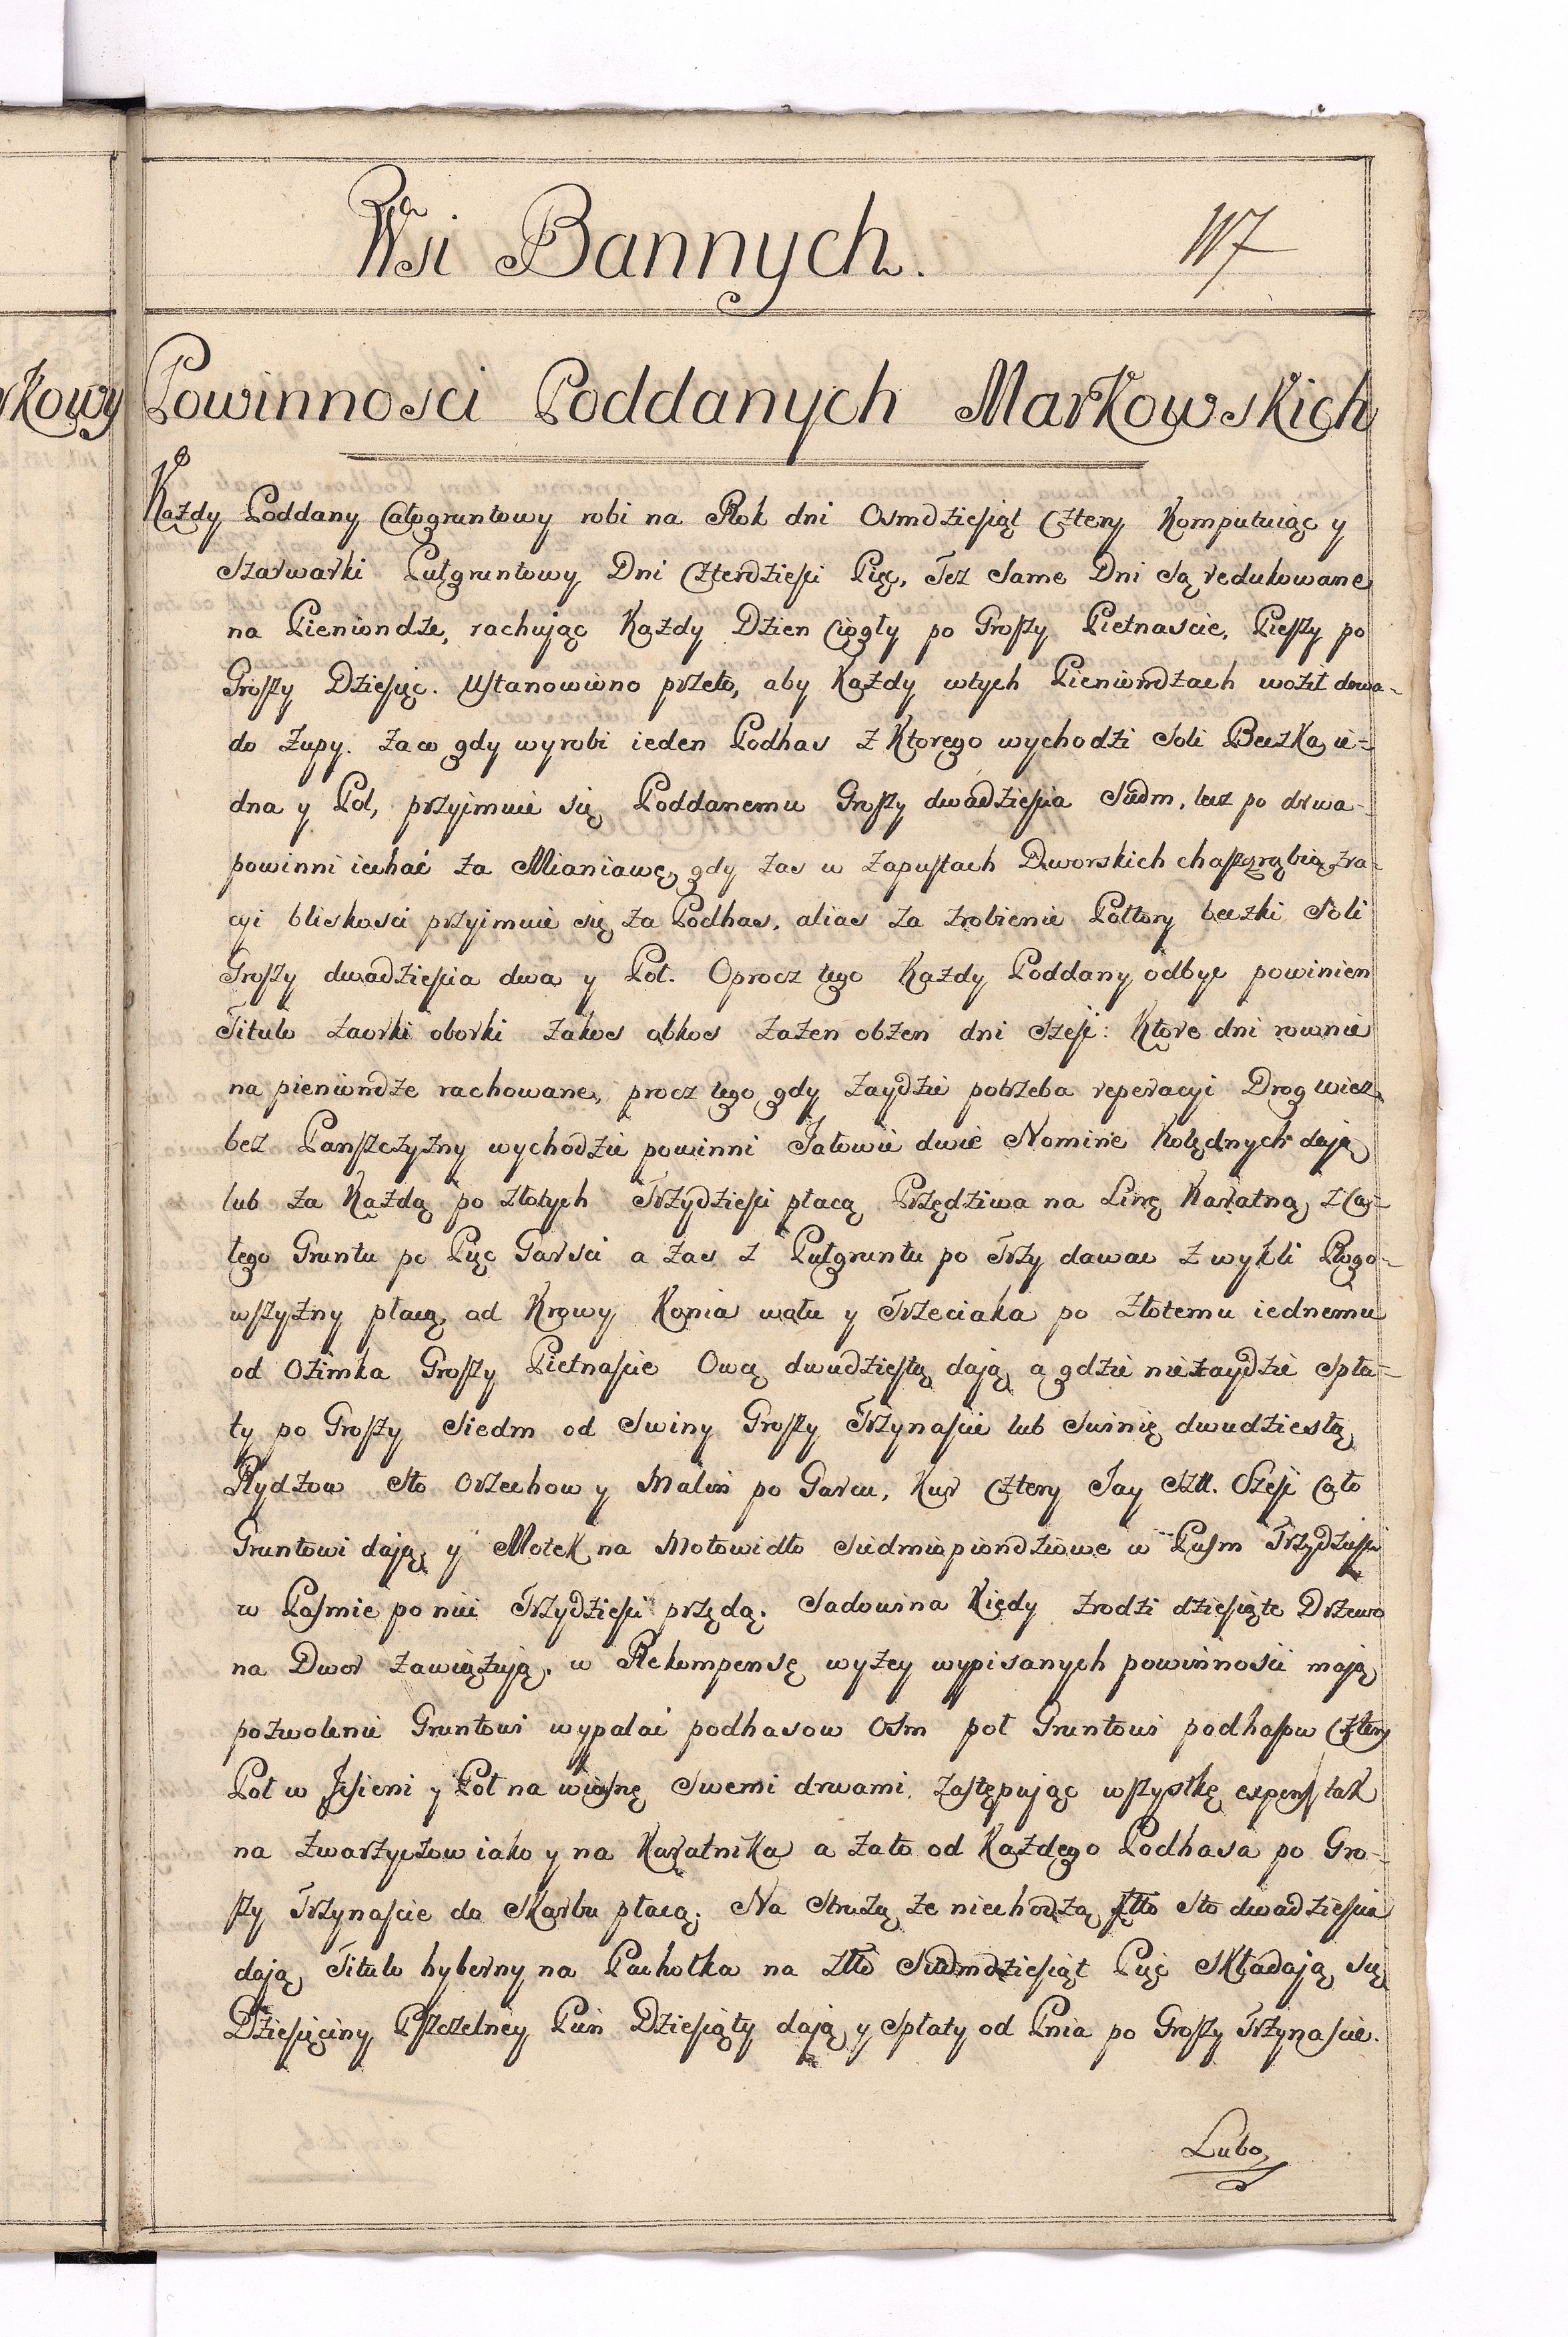 Wsi Bannych.
117
rkowy
Powinnosci Poddanych Markowskich
Każdy Poddany Całogruntowy robi na Rok dni Osmdziesiąt Cztery Komputuiąc y
Szarwarki Pułgruntowy Dni Czterdziesci Pięc, Tez same Dni są redukowane
na Pieniondze, rachując Każdy Dzien Ciogły po Groszy Pietnascie, Pieszy po
Groszy Dziesięc. Ustanowiono przeto, aby Każdy wtych Pieniondzach woził drwa-
do Zupy. Zaco gdy wyrobi ieden Podhas z Ktorego wychodzi Soli Beczka ie-
dna y Poł, przyjmuie się Poddanemu Groszy dwadziescia Siedm, lecz po drwa-
powinni iechać za Mianiawę, gdy zas w Zapustach Dworskich chaszczrąbią, zra-
cyi bliskosci przyimuie się za Podhas, alias za zrobienie Połtory beczki Soli
Groszy dwadziescia dwa y Poł. Oprocz tego Każdy Poddany odbyc powinien
Titulo zaorki oborki zakos obkos zażen obżen dni szesc: Ktore dni rownie
na pieniondze rachowane, procz tego gdy zaydzie potrzeba reperacyi Drog wiez
bez Panszczyzny wychodzic powinni Jałowic dwie Nomine Kolędnych dają
lub za Każdą po złotych Trzydziesci płacą Przędziwa na Linę Karatną z Ca-
łego Gruntu po Pięc Garsci a zas z Pułgruntu po Trzy dawac zwykli Rogo-
wszyzny płacą od Krowy Konia wołu y Trzeciaka po Złotemu iednemu
od Ozimka Groszy Pietnascie Owcę dwudziestą dają, a gdzie niezaydzie Spła-
ty po Groszy Siedm od Swiny Groszy Trzynascie lub Swinię dwudziestą
Rydzow Sto Orzechow y Malin po Garcu, Kur Cztery Jay Szt. Szesc Cało
Gruntowi dają, y Motek na Motowidło siedmiopiondziowe w Pasm Trzydziesci
w Pasmie po nici Trzydziesci przędą. Sadowina Kiedy zrodzi dziesiąte Drzewo
na Dwor zawiązują. w Rekompensę wyzey wypisanych powinnosci mają
pozwolenie Gruntowi wypalac podhasow Osm poł Gruntowi podhasow Cztery
Poł w Jesieni y Poł na wiosnę Swemi drwami, Zastępując wszystkę expens tak
na zwarzyczow iako y na Karatnika a zato od Każdego Podhasa po Gro-
szy Trzynascie do Skarbu płacą. Na Strużą że niechodzą Złło Sto dwadziescia
dają, Titulo hyberny na Pachołka na Złło Siedmdziesiąt Pięc Składają się
Dziesięciny Pszczelney Pień Dziesiąty dają y Spłaty od Pnia po Groszy Trzynascie.
Lubo